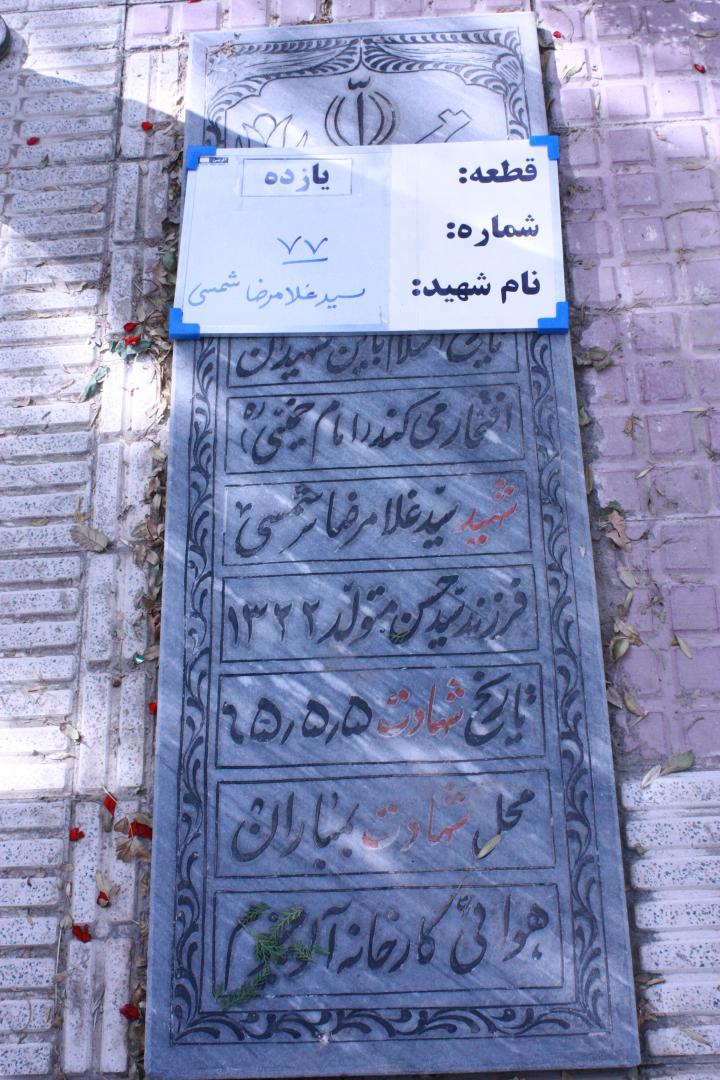 قطعه: یازده
شماره: ۷۷
نام شهید: سیدغلامرضا شمسی
تاریخ اسلام با این شهیدان
افتخار می کند امام خمینی (ره)
شهید سیّد غلامرضا شمسی
فرزند سید حسن متولد ۱۳۲۲
تاریخ شهادت ۶۵٫۵٫۵
محل شهادت بمباران
هوائی کارخانه آلومینیوم